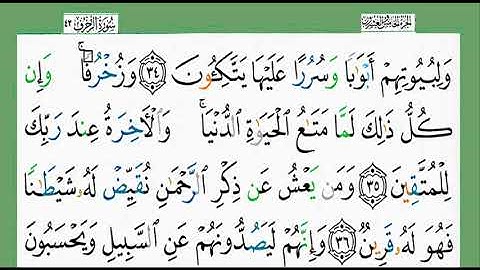 سُورَةُ الزُّخْرُفِ ٤٣ الجزء الخامس والعشرون
وَلِبُيُوتِهِمْ أَبْوَٰبًا وَسُرُرًا عَلَيْهَا يَتَّكِـُٔونَ ٣٤ وَزُخْرُفًا ۚ وَإِن
كُلُّ ذَٰلِكَ لَمَّا مَتَـٰعُ الْحَيَوٰةِ الدُّنْيَا ۚ وَالْـَٔاخِرَةُ عِندَ رَبِّكَ
لِلْمُتَّقِينَ ٣٥ وَمَن يَعْشُ عَن ذِكْرِ الرَّحْمَـٰنِ نُقَيِّضْ لَهُۥ شَيْطَـٰنًا
فَهُوَ لَهُۥ قَرِينٌ ٣٦ وَإِنَّهُمْ لَيَصُدُّونَهُمْ عَنِ السَّبِيلِ وَيَحْسَبُونَ